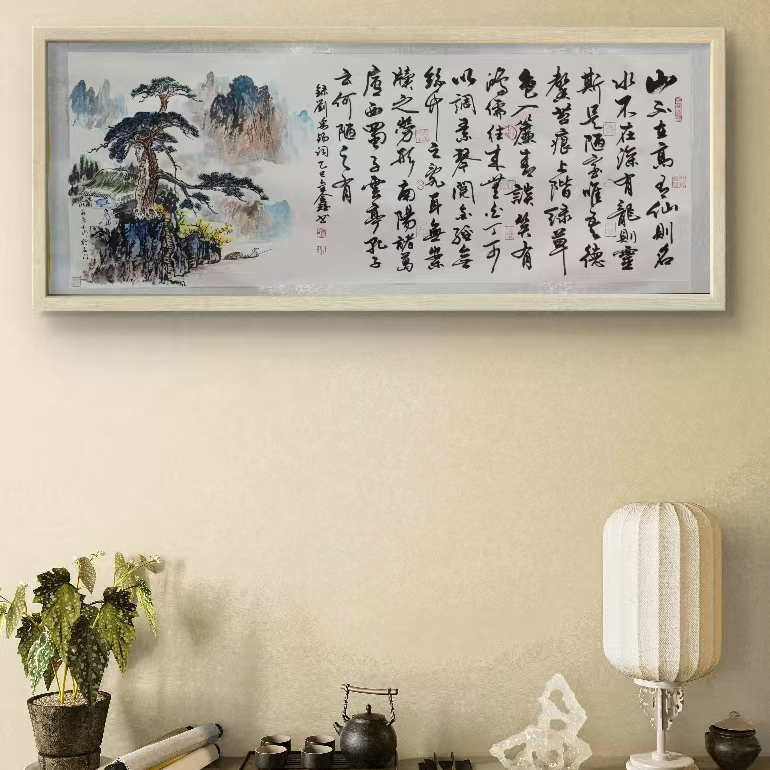 山不在高有仙則名
水不在深有龍則靈
斯是陋室唯吾德
馨苔痕上階綠草
色入簾青談笑有
鴻儒往來無白丁可
以調素琴閱金經無
絲竹之亂耳無案
牘之勞形南陽諸葛
廬西蜀子雲亭孔子
云何陋之有
錄劉禹錫詞乙巳鑫书